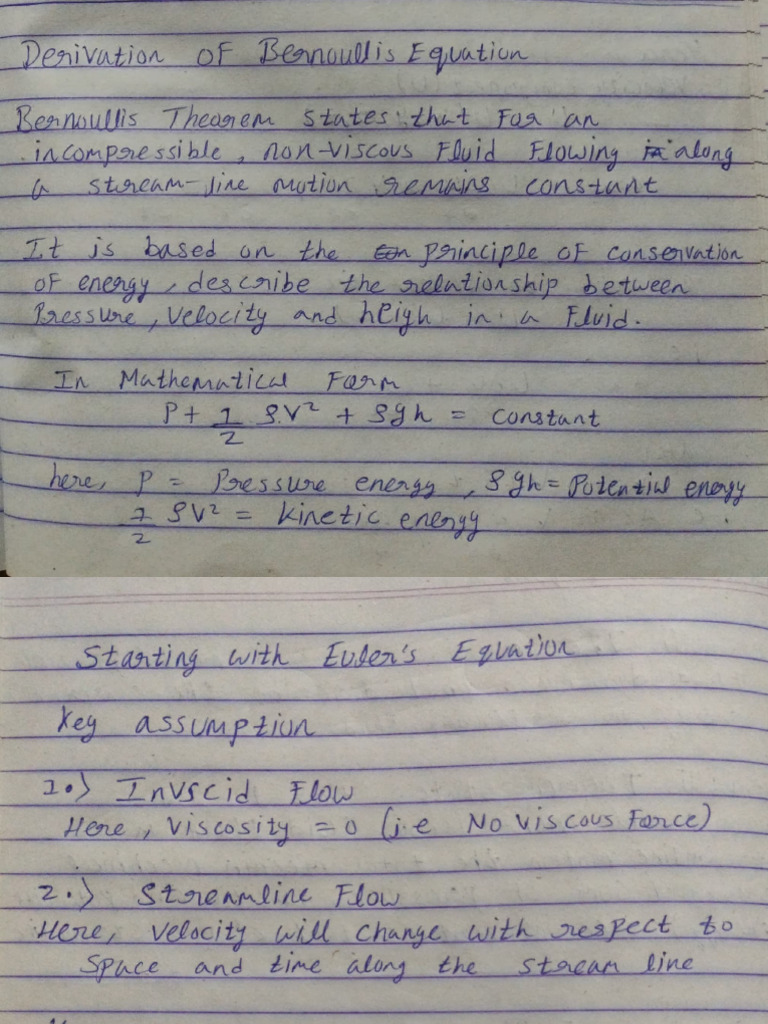 Derivation of Bernoullis Equation
Bernoullis Theorem states that for an
incompressible, non-viscous Fluid Flowing along
a stream-line motion remains constant
It is based on the principle of conservation
of energy, describe the relationship between
Pressure, Velocity and heigh in a Fluid.
In Mathematical Form
P + 1/2 ρv² + ρgh = constant
here, P = Pressure energy, ρgh = Potential energy
1/2 ρv² = Kinetic energy
Starting with Euler's Equation
Key assumption
1.) Invscid Flow
Here, Viscosity = 0 (i.e No viscous Force)
2.) Streamline Flow
Here, Velocity will change with respect to
space and time along the stream line